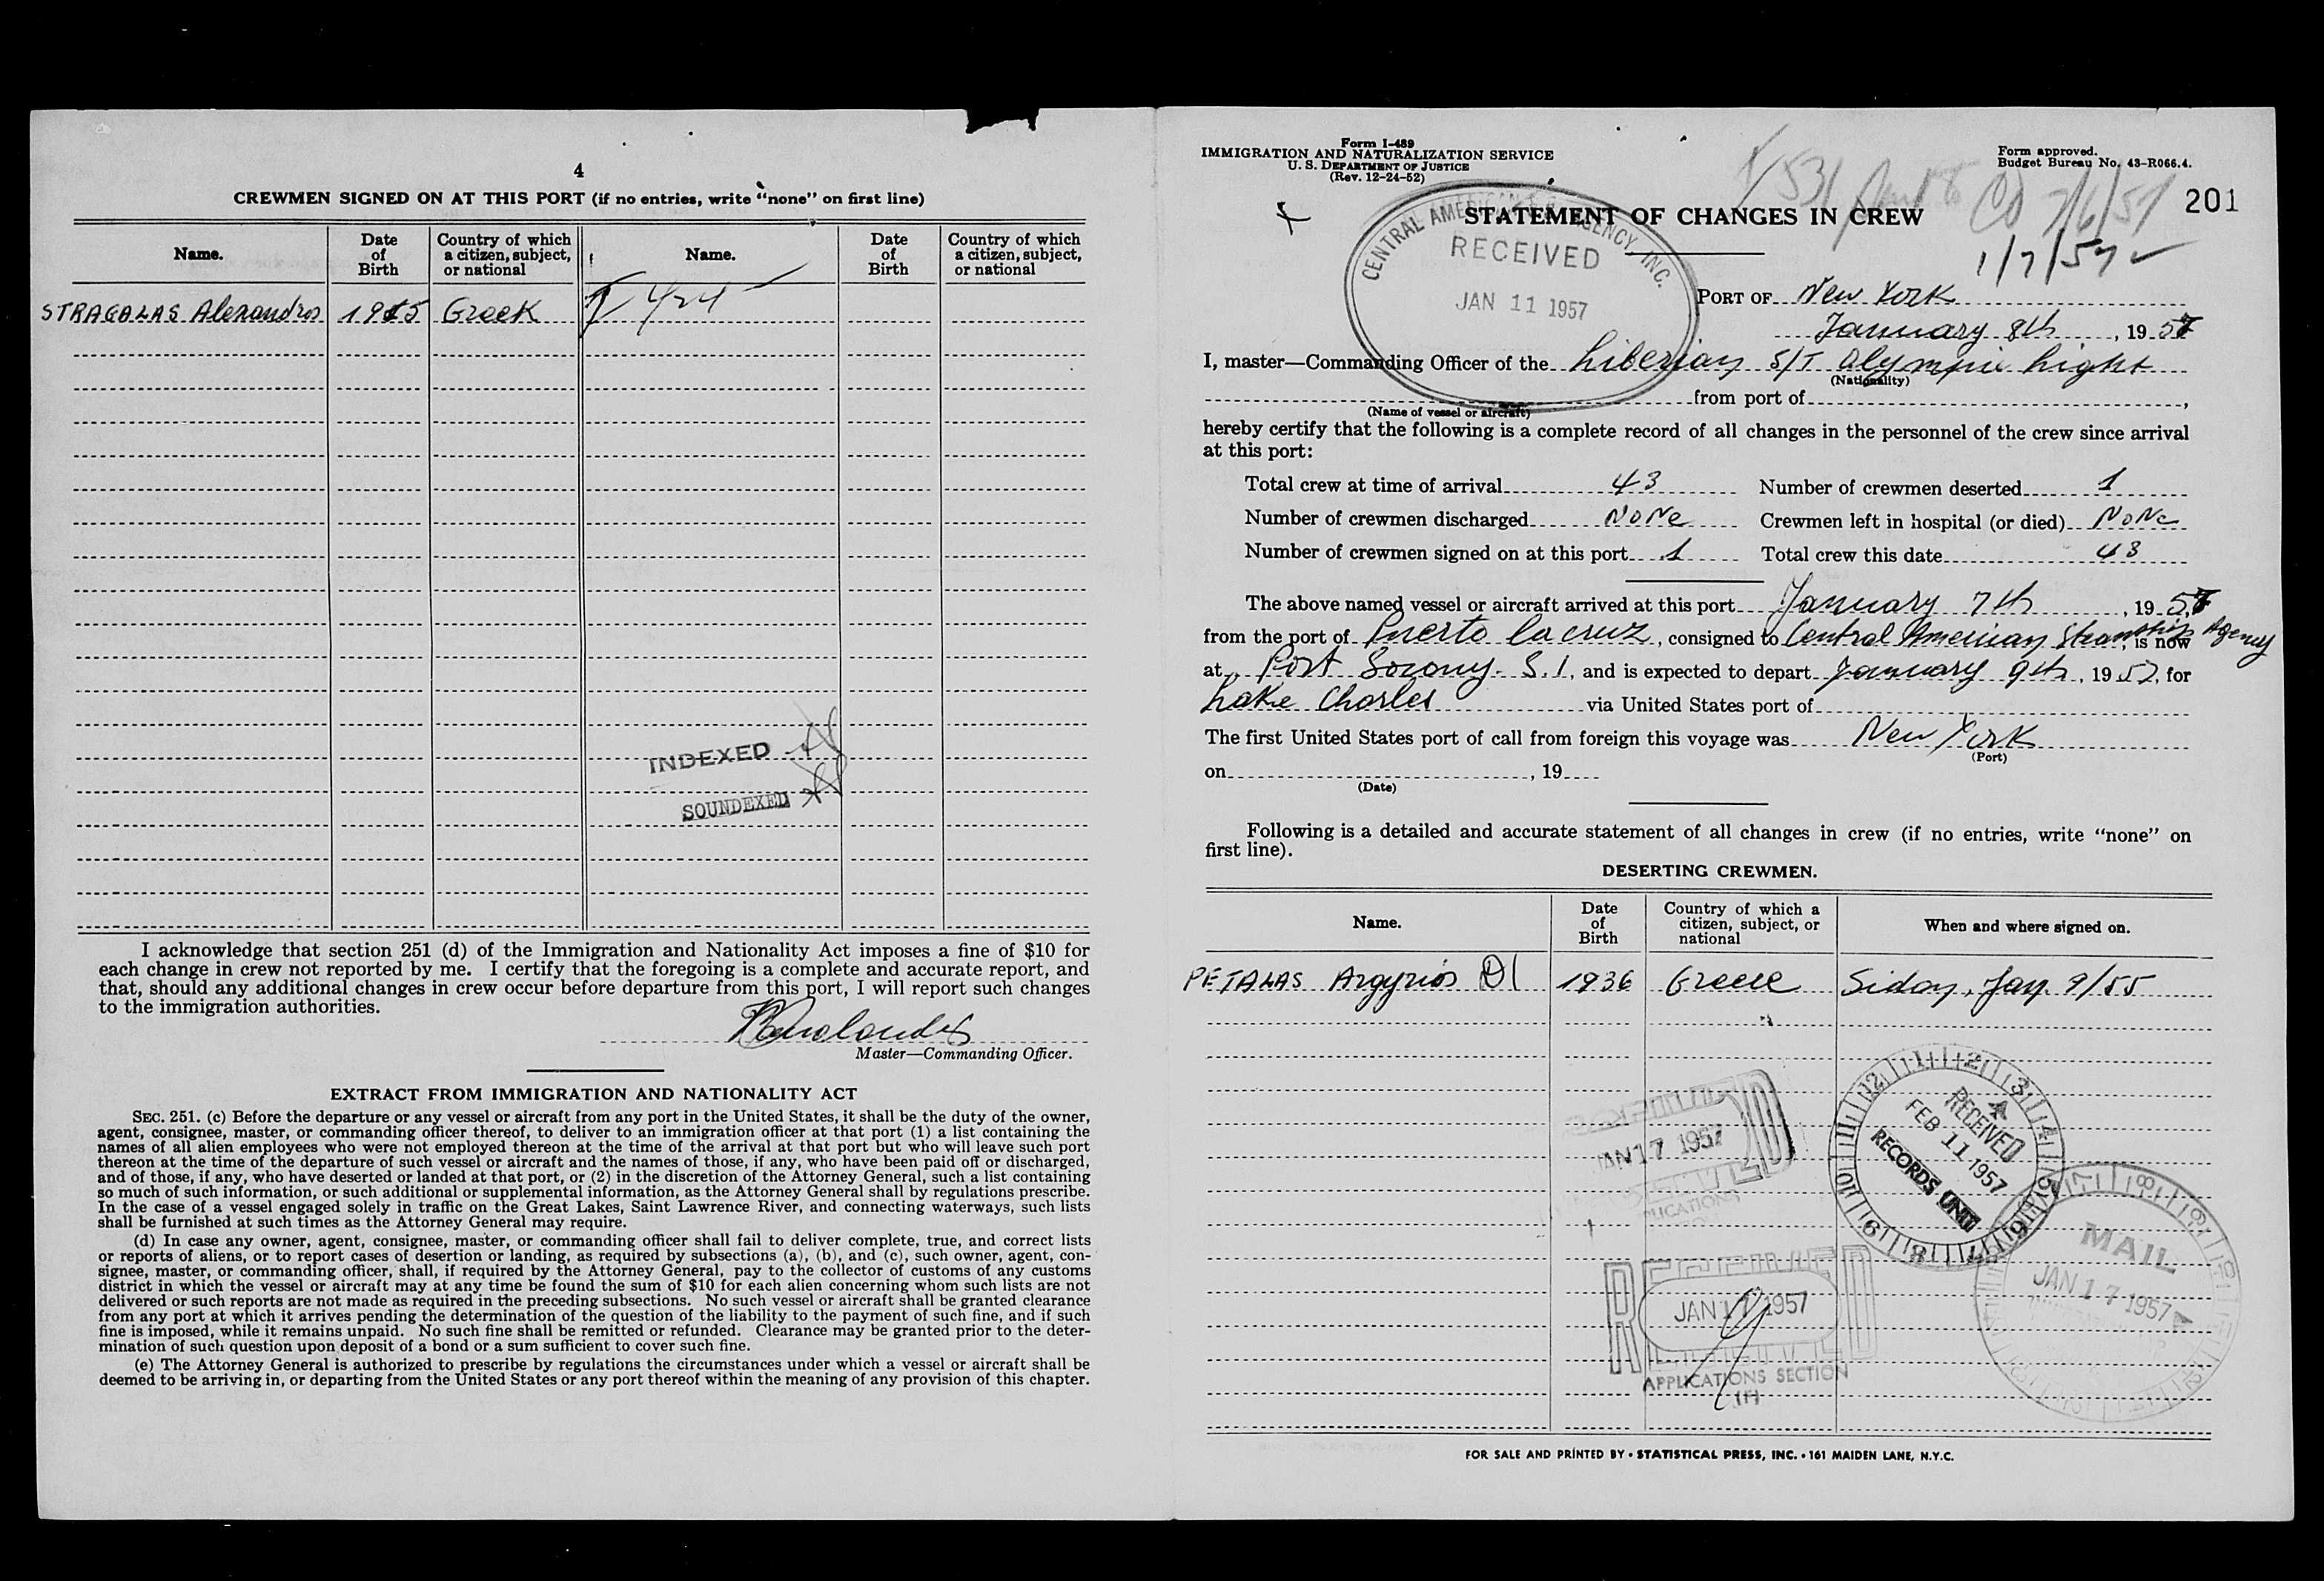 4
CREWMEN SIGNED ON AT THIS PORT (if no entries, write "none" on first line)
Name. Date of Birth Country of which a citizen, subject, or national Name. Date of Birth Country of which a citizen, subject, or national
STRAGALAS Alexandros 1915 Greek 424
INDEXED
SOUNDEXED
I acknowledge that section 251 (d) of the Immigration and Nationality Act imposes a fine of $10 for
each change in crew not reported by me. I certify that the foregoing is a complete and accurate report, and
that, should any additional changes in crew occur before departure from this port, I will report such changes
to the immigration authorities.
Master—Commanding Officer.
EXTRACT FROM IMMIGRATION AND NATIONALITY ACT
SEC. 251. (c) Before the departure or any vessel or aircraft from any port in the United States, it shall be the duty of the owner,
agent, consignee, master, or commanding officer thereof, to deliver to an immigration officer at that port (1) a list containing the
names of all alien employees who were not employed thereon at the time of the arrival at that port but who will leave such port
thereon at the time of the departure of such vessel or aircraft and the names of those, if any, who have been paid off or discharged,
and of those, if any, who have deserted or landed at that port, or (2) in the discretion of the Attorney General, such a list containing
so much of such information, or such additional or supplemental information, as the Attorney General shall by regulations prescribe.
In the case of a vessel engaged solely in traffic on the Great Lakes, Saint Lawrence River, and connecting waterways, such lists
shall be furnished at such times as the Attorney General may require.
(d) In case any owner, agent, consignee, master, or commanding officer shall fail to deliver complete, true, and correct lists
or reports of aliens, or to report cases of desertion or landing, as required by subsections (a), (b), and (c), such owner, agent, con-
signee, master, or commanding officer, shall, if required by the Attorney General, pay to the collector of customs of any customs
district in which the vessel or aircraft may at any time be found the sum of $10 for each alien concerning whom such lists are not
delivered or such reports are not made as required in the preceding subsections. No such vessel or aircraft shall be granted clearance
from any port at which it arrives pending the determination of the question of the liability to the payment of such fine, and if such
fine is imposed, while it remains unpaid. No such fine shall be remitted or refunded. Clearance may be granted prior to the deter-
mination of such question upon deposit of a bond or a sum sufficient to cover such fine.
(e) The Attorney General is authorized to prescribe by regulations the circumstances under which a vessel or aircraft shall be
deemed to be arriving in, or departing from the United States or any port thereof within the meaning of any provision of this chapter.
Form I-489
IMMIGRATION AND NATURALIZATION SERVICE
U. S. DEPARTMENT OF JUSTICE
(Rev. 12-24-52)
Form approved.
Budget Bureau No. 43-R066.4.
201
STATEMENT OF CHANGES IN CREW
1/7/57
CENTRAL AMERICAN AGENCY, INC.
RECEIVED
JAN 11 1957
PORT OF New York
January 8th, 1957
I, master—Commanding Officer of the Liberian S/T Olympic Light
(Nationality)
from port of ,
(Name of vessel or aircraft)
hereby certify that the following is a complete record of all changes in the personnel of the crew since arrival
at this port:
Total crew at time of arrival 43 Number of crewmen deserted 1
Number of crewmen discharged NoNe Crewmen left in hospital (or died) NoNe
Number of crewmen signed on at this port 1 Total crew this date 43
The above named vessel or aircraft arrived at this port January 7th, 1957,
from the port of Puerto la cruz, consigned to Central American Steamship Agency, is now
at Port Socony S.I, and is expected to depart January 9th, 1957, for
Lake Charles via United States port of
The first United States port of call from foreign this voyage was New York
(Port)
on , 19
(Date)
Following is a detailed and accurate statement of all changes in crew (if no entries, write "none" on
first line).
DESERTING CREWMEN.
Name. Date of Birth Country of which a citizen, subject, or national When and where signed on.
PETALAS Argyrios 1936 Greece Sidon, Jan. 9/55
JAN 17 1957
RECEIVED
FEB 11 1957
RECORDS UNIT
MAIL
JAN 17 1957
RECEIVED
JAN 17 1957
APPLICATIONS SECTION
FOR SALE AND PRINTED BY • STATISTICAL PRESS, INC. • 161 MAIDEN LANE, N.Y.C.